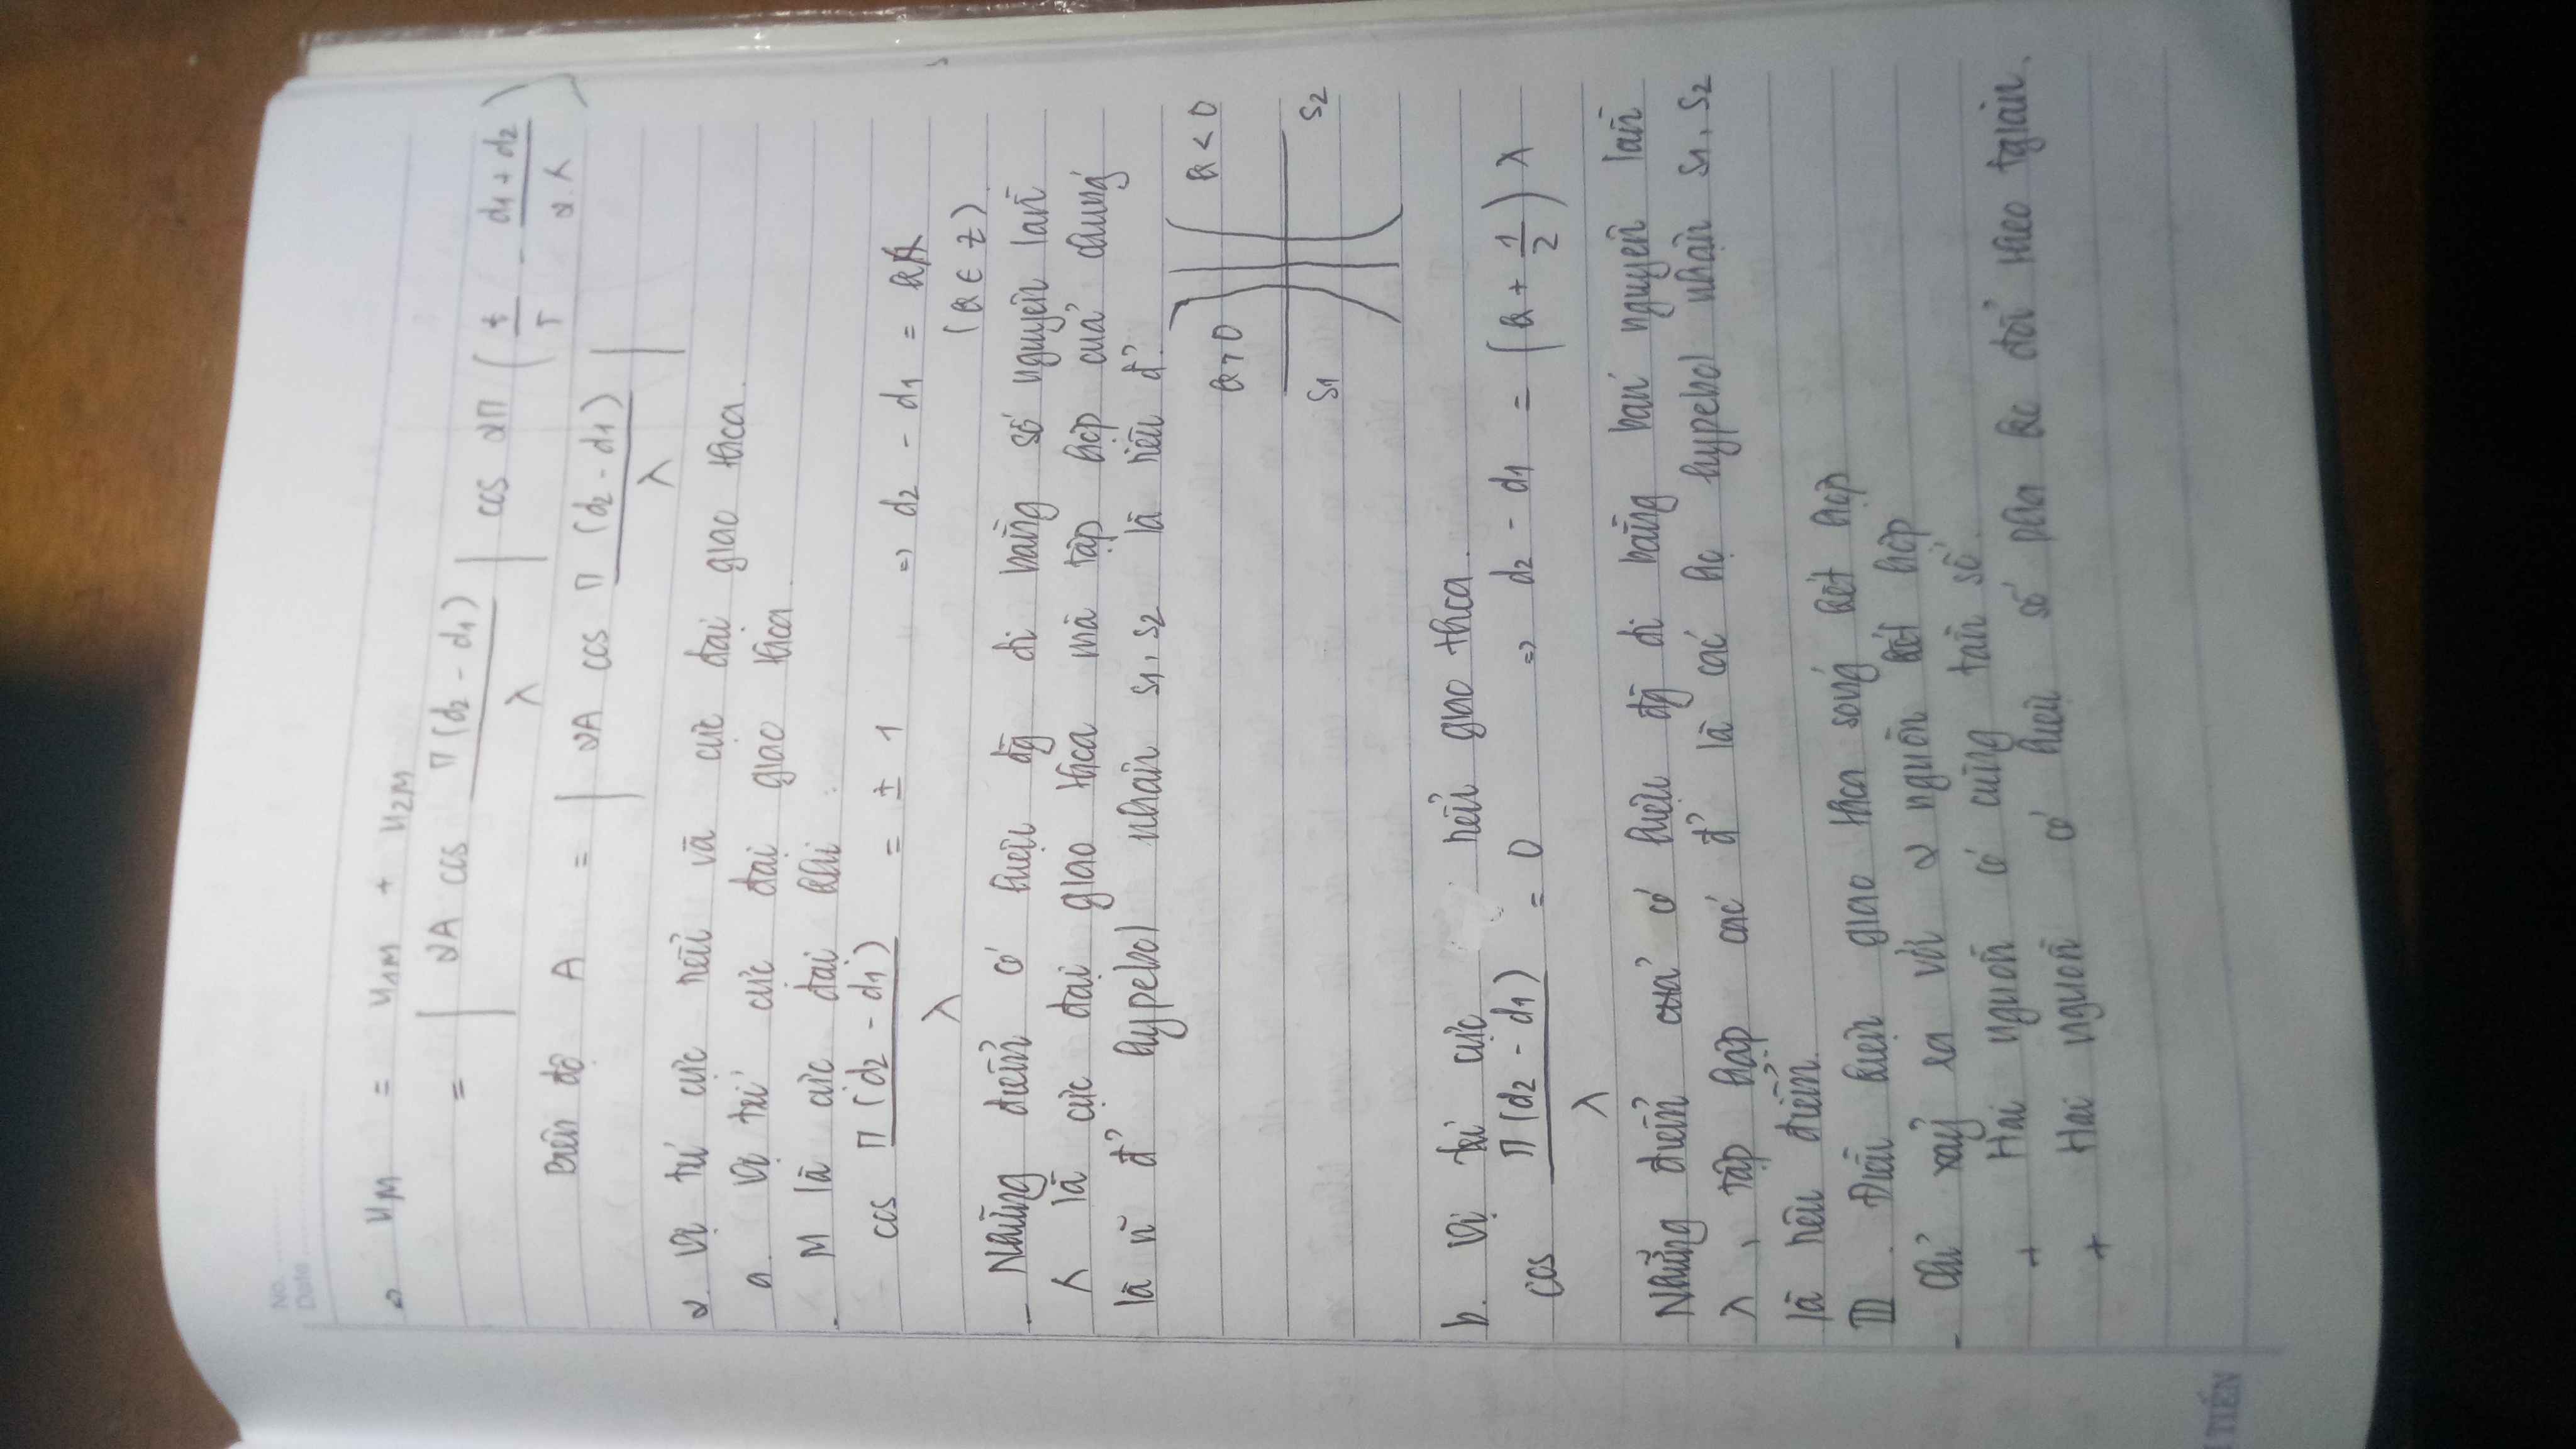 No. ............
Date ............
→ uM = u1M + u2M
= | 2A cos π(d2 - d1)/λ | cos 2π ( t/T - (d1 + d2)/2λ )
Biên độ A = | 2A cos π(d2 - d1)/λ |
2. Vị trí cực tiểu và cực đại giao thoa.
a. Vị trí cực đại giao thoa.
- M là cực đại khi:
cos π(d2 - d1)/λ = ± 1 => d2 - d1 = kλ
(k ∈ Z)
- Những điểm có hiệu đg đi bằng số nguyên lần
λ là cực đại giao thoa mà tập hợp của chúng
là n̄ đ' hypebol nhận S1, S2 là tiêu đ'.
k>0 k<0
S1 S2
b. Vị trí cực tiểu giao thoa.
cos π(d2 - d1)/λ = 0 => d2 - d1 = (k + 1/2) λ
Những điểm có hiệu đg đi bằng bán nguyên lần
λ, tập hợp các đ' là các họ hypebol nhận S1, S2
là tiêu điểm.
III. Điều kiện giao thoa sóng kết hợp
- Chỉ xảy ra với 2 nguồn kết hợp
+ Hai nguồn có cùng tần số.
+ Hai nguồn có hiệu số pha ko đổi theo tgian.
TIẾN